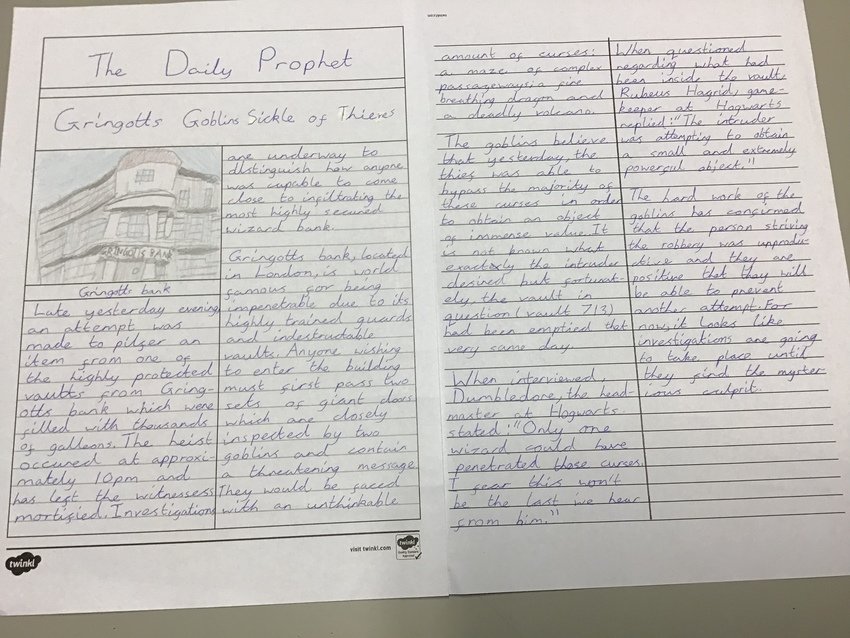 The Daily Prophet
Gringotts Goblins Sickle of Thieves
GRINGOTTS BANK
Gringotts bank
Late yesterday evening,
an attempt was
made to pilfer an
item from one of
the highly protected
vaults from Gring-
otts bank which were
filled with thousands
of galleons. The heist
occured at approxi-
mately 10pm and
has left the witnesses
mortified. Investigations
are underway to
distinguish how anyone
was capable to come
close to infiltrating the
most highly secured
wizard bank.
Gringotts bank, located
in London, is world
famous for being
impenetrable due to its
highly trained guards
and indestructable
vaults. Anyone wishing
to enter the building
must first pass two
sets of giant doors
which are closely
inspected by two
goblins and contain
a threatening message.
They would be faced
with an unthinkable
visit twinkl.com
twinkl
twinkl
amount of curses:
a maze of complex
passageways; a fire
breathing dragon and
a deadly volcano.
The goblins believe
that yesterday, the
thief was able to
bypass the majority of
these curses in order
to obtain an object
of immense value. It
is not known what
exactly the intruder
desired but fortunat-
ely, the vault in
question (vault 713)
had been emptied that
very same day.
When interviewed,
Dumbledore, the head-
master at Hogwarts
stated: "Only one
wizard could have
penetrated those curses.
I fear this won't
be the last we hear
from him."
When questioned
regarding what had
been inside the vault,
Rubeus Hagrid, game-
keeper at Hogwarts
replied: "The intruder
was attempting to obtain
a small and extremely
powerful object."
The hard work of the
goblins has confirmed
that the person striving
the robbery was unprodu-
ctive and they are
positive that they will
be able to prevent
another attempt. For
now, it looks like
investigations are going
to take place until
they find the myster-
ious culprit.